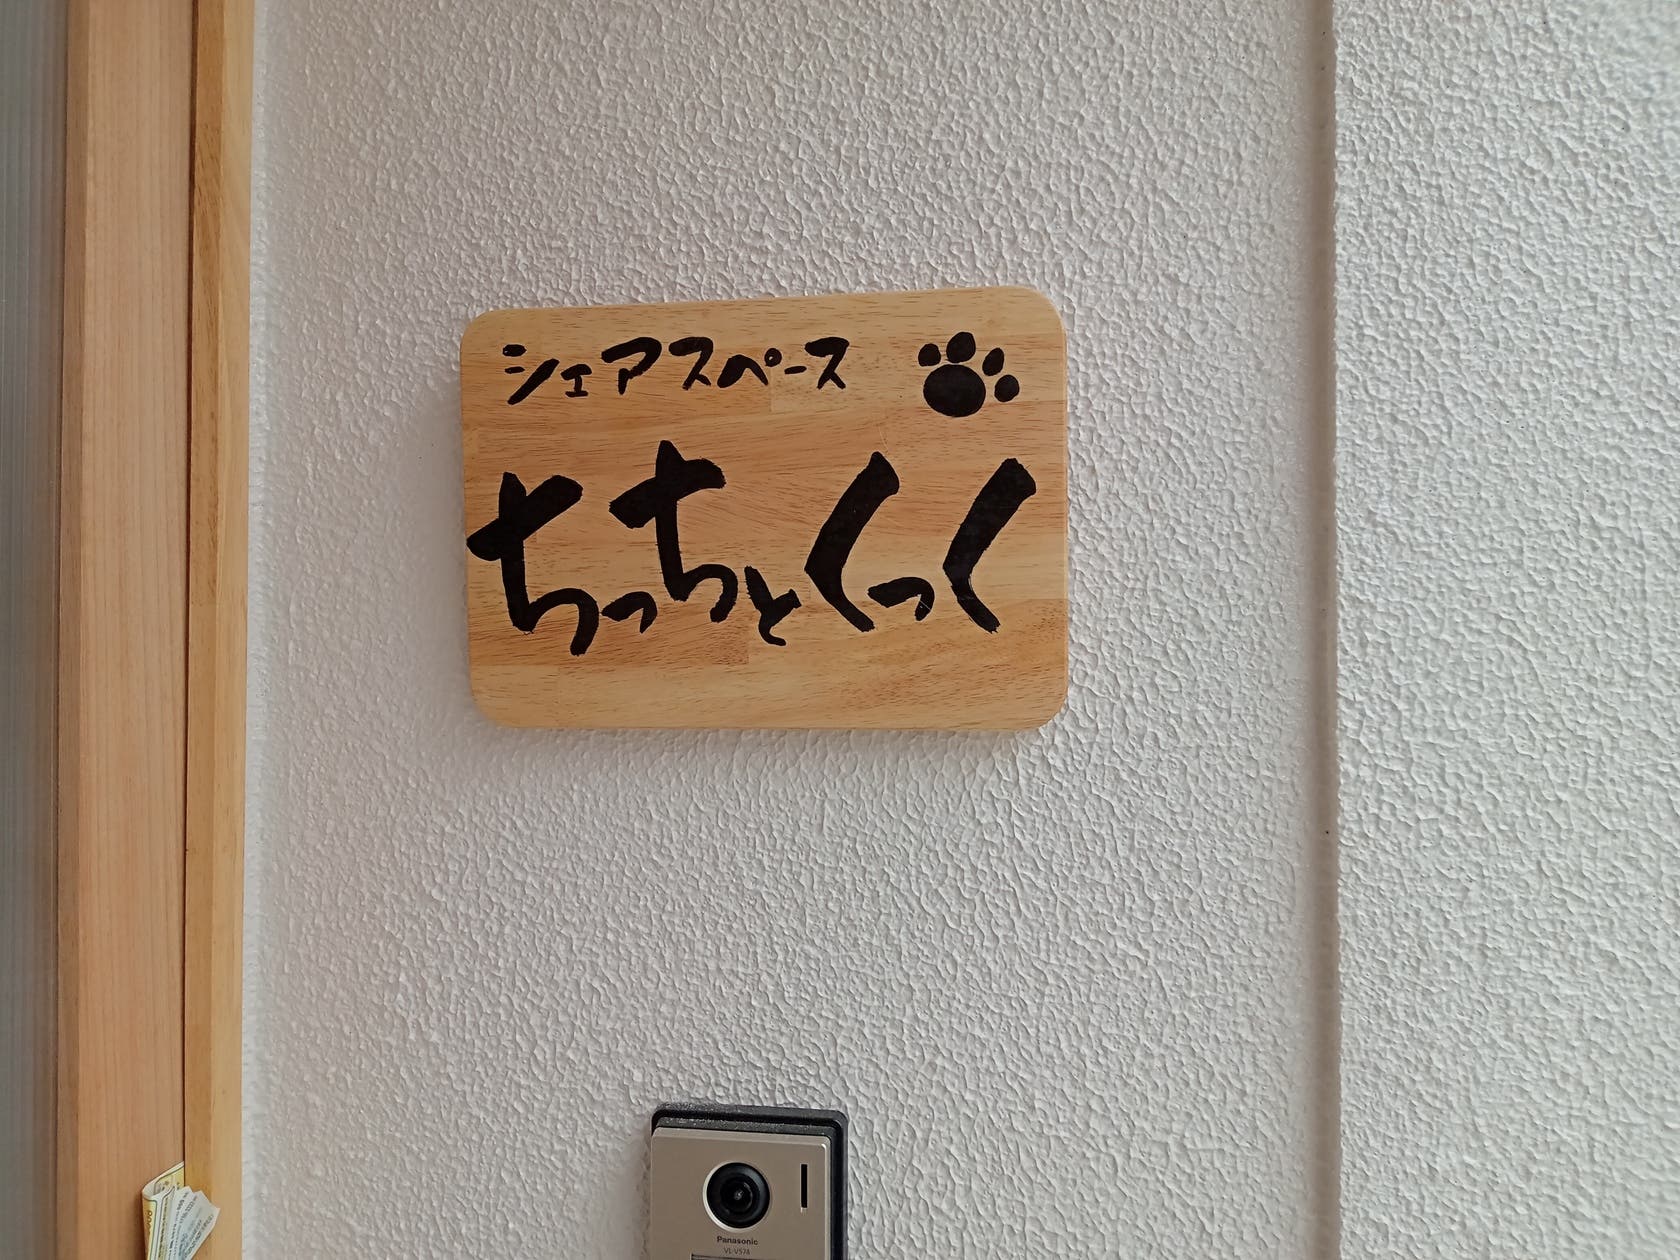 シェアスペース
ちっちとくっく
Panasonic
VL-V574